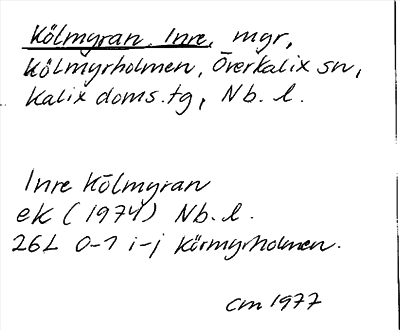 Kölmyran, Inre, mgr,
Kölmyrholmen, Överkalix sn,
Kalix doms.tg, Nb. l.
Inre Kölmyran
ek (1974) Nb. l.
26L 0-1 i-j Körmyrholmen.
cm 1977